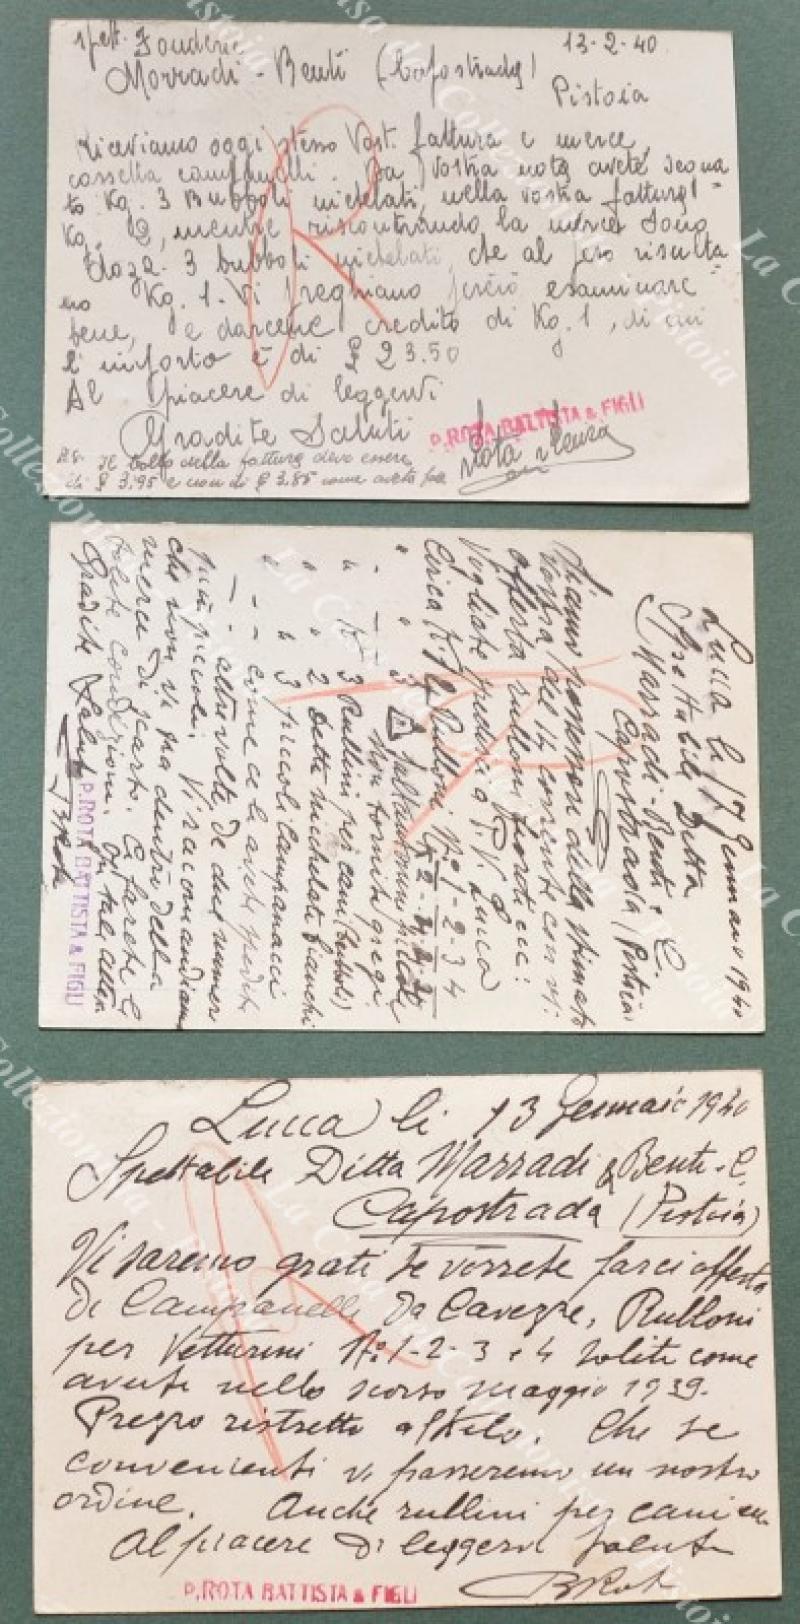 Spett. Fonderie
13-2-40
Marradi-Benti (Capostrada)
Pistoia
Riceviamo oggi stesso Vost. fattura e merce,
cassetta campanelli. Da Vostra nota avete segna
to Kg. 3 Bubboli nichelati, nella vostra fattura
Kg. 2, mentre riscontrando la merce sono
dozz. 3 bubboli nichelati, che al peso risulta
no Kg. 1. Vi preghiamo perciò esaminare
bene, e darcene credito di Kg. 1, di cui
l'importo è di 23.50
Al piacere di leggervi
Gradite Saluti
P. ROTA BATTISTA & FIGLI
Il bollo nella fattura deve essere
di £ 3.95 e non di £ 3.85 come avete
Lucca li 17 Gennaio 1940
Spettabile Ditta
Marradi-Benti e C.
Capostrada (Pistoia)
Siamo possessori della stimata
vostra del 14 corrente con vs.
offerta rulloni
Vogliate spedirci a P.V. Lucca
Circa K. Rulloni N. 1-2-3-4
3 Rullini per cani
2 Dette nichelati bianchi
3 piccoli campanacci
come ce li avete spediti
altre volte de due numeri
più piccoli. Vi raccomandiamo
che non vi sia dentro della
merce di scarto. e farete le
solite condizioni. In tale attesa
Gradite Saluti
B Rota
P. ROTA BATTISTA & FIGLI
Lucca li 13 Gennaio 1940
Spettabile Ditta Marradi & Benti-C.
Capostrada (Pistoia)
Vi saremo grati se vorrete farci offerta
di Campanelli da Cavezze, Rulloni
per Vetturini N: 1-2-3 e 4 soliti come
avuti nello scorso maggio 1939.
Prezzo ristretto al Kilo. Che se
convenienti vi passeremo un nostro
ordine. Anche rullini per cani ecc.
Al piacere di leggervi saluti
B Rota
P. ROTA BATTISTA & FIGLI